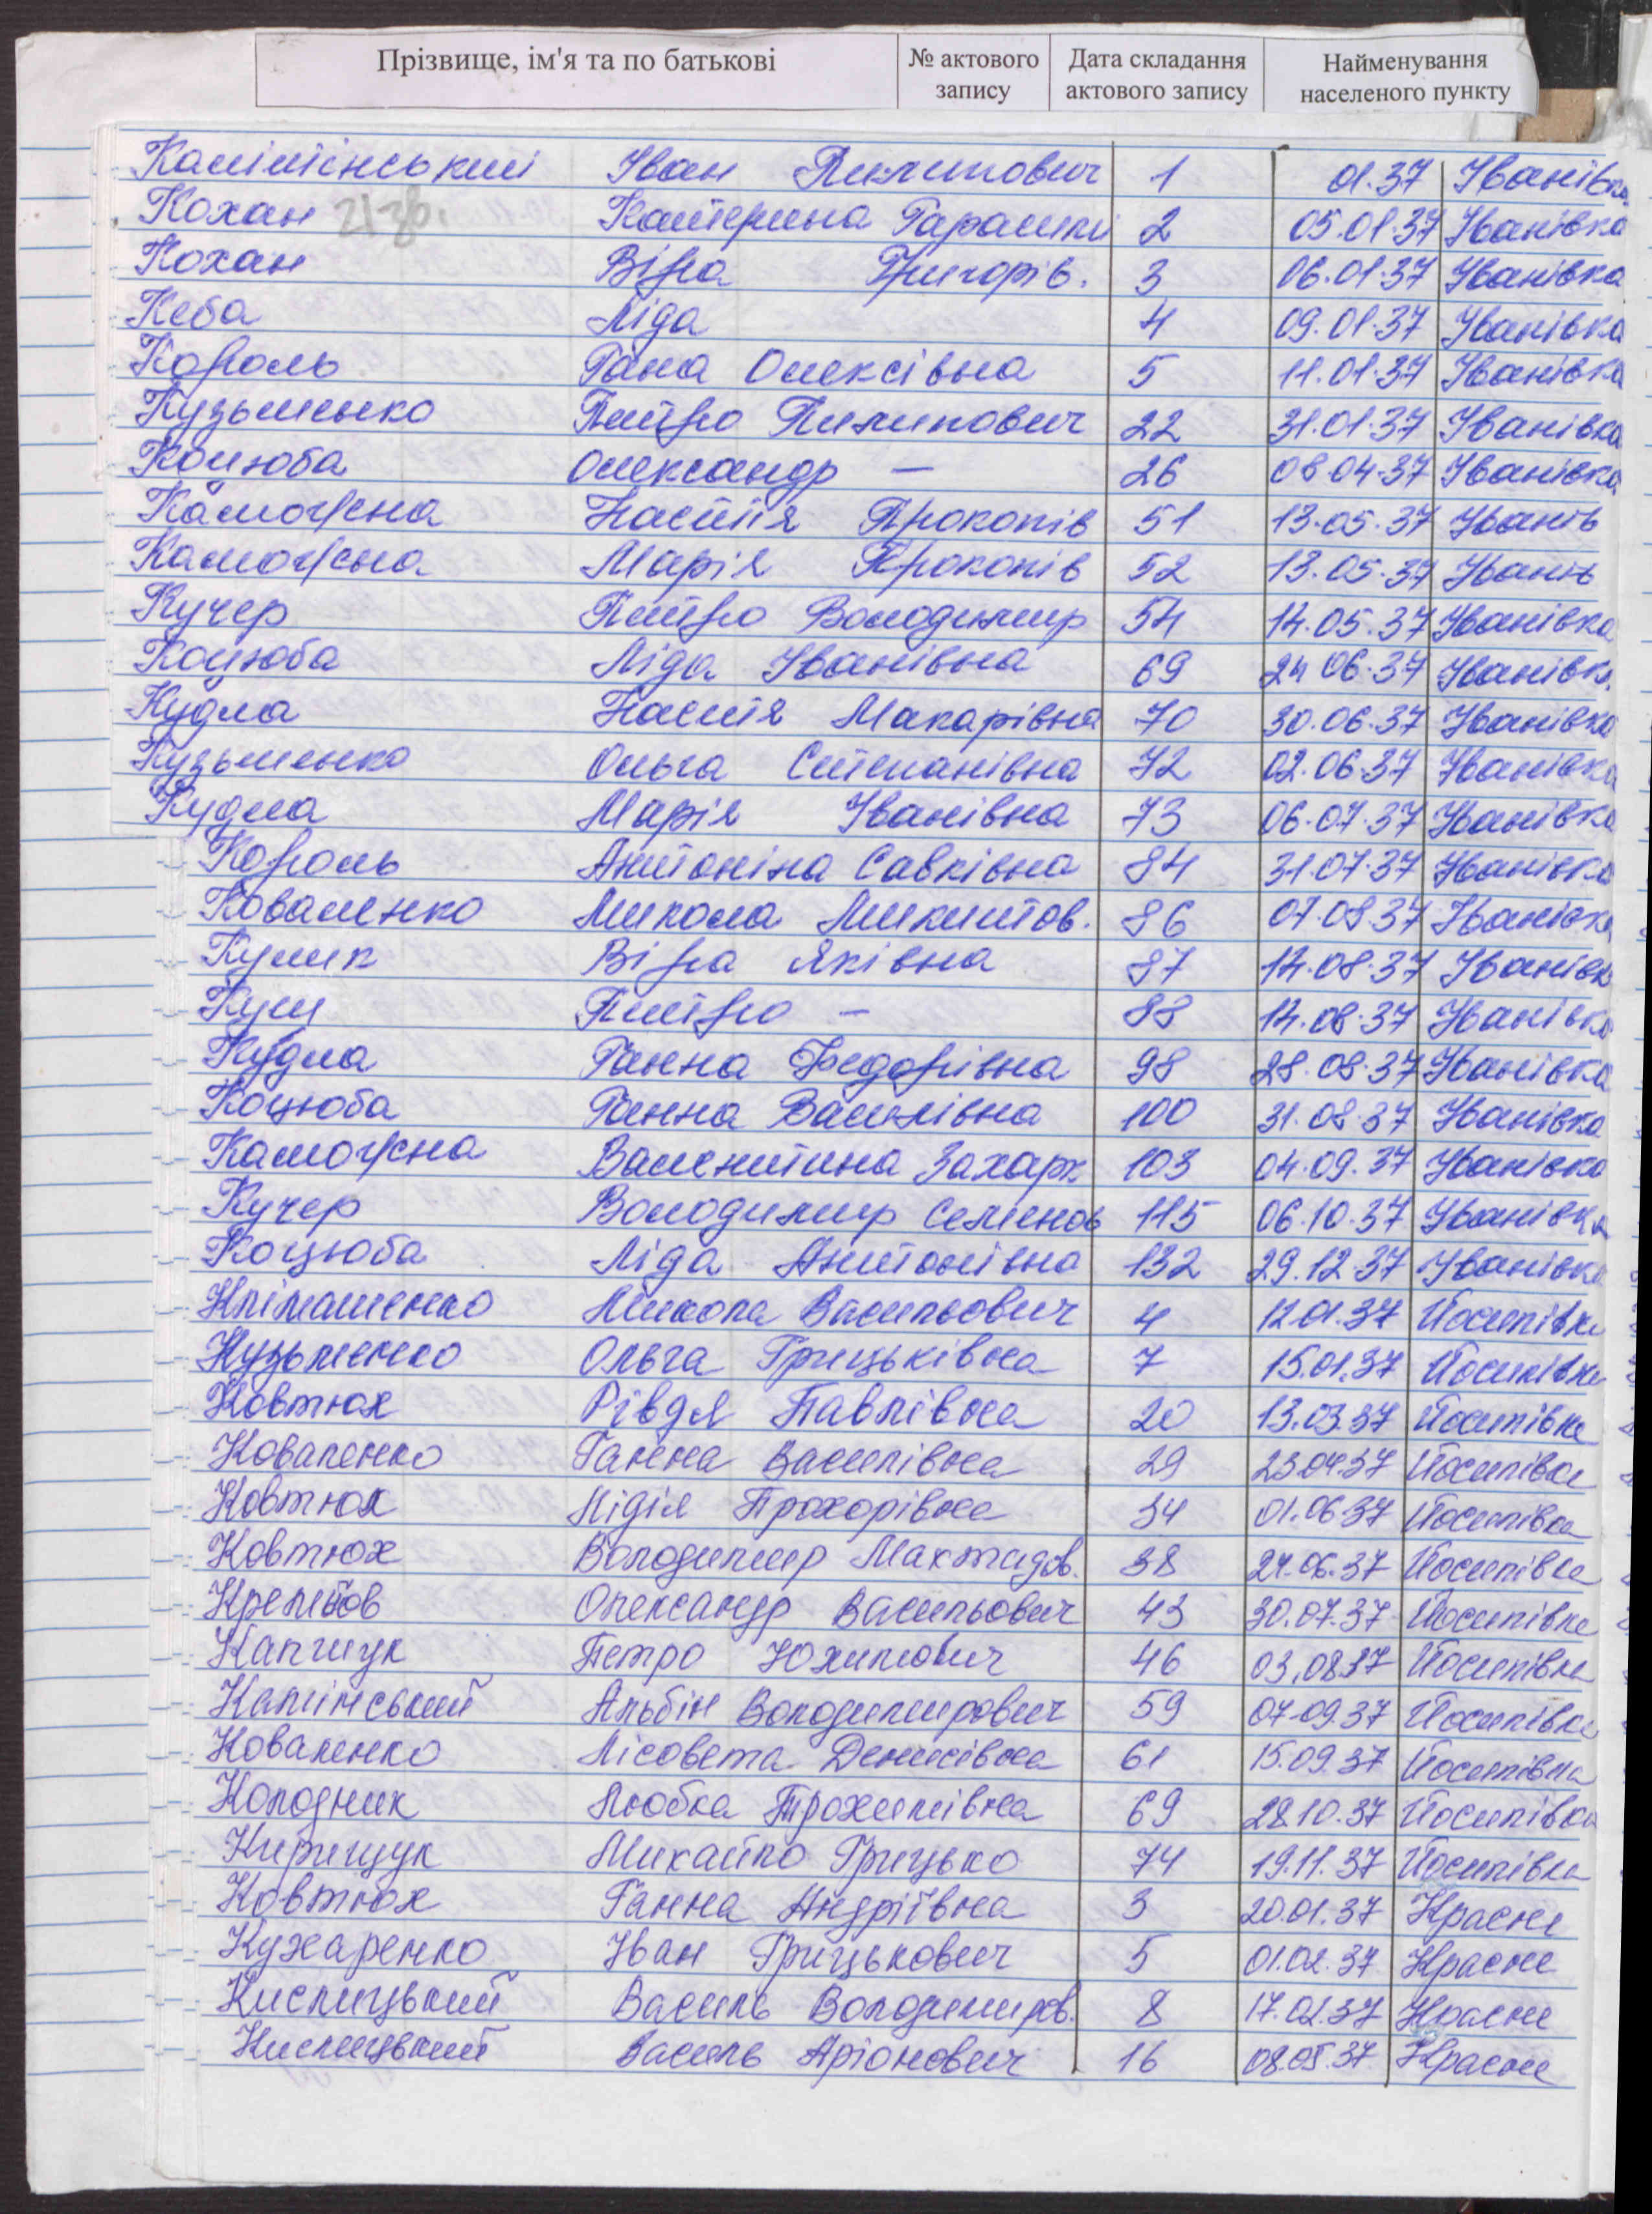 Прізвище, ім'я та по батькові № актового запису Дата складання актового запису Найменування населеного пункту
Іван Пилипович 1 01.37 Іванівка
Кохан Катерина 2 05.01.37 Іванівка
Кохан Віра Григорів. 3 06.01.37 Іванівка
Кеба Ліда 4 09.01.37 Іванівка
Король Галя Олексівна 5 11.01.37 Іванівка
Кузьменко Петро Пилипович 22 31.01.37 Іванівка
Коцюба Олександр — 26 08.04.37 Іванівка
Каможна Настія Прокопів 51 13.05.37 Іванів
Каможна Марія Прокопів 52 13.05.37 Іванів
Кучер Петро Володимир 54 14.05.37 Іванівка
Коцюба Ліда Іванівна 69 24 06.37 Іванівка
Кудла Настія Макарівна 70 30.06.37 Іванівка
Кузьменко Ольга Степанівна 72 02.06.37 Іванівка
Кудла Марія Іванівна 73 06.07.37 Іванівка
Король Антоніна Савківна 84 31.07.37 Іванівка
Коваленко Микола Микитов. 86 07.08.37 Іванівка
Кулик Віра Яківна 87 14.08.37 Іванівк
Петро — 88 14.08.37 Іванівка
Кудла Ганна Федорівна 98 28.08.37 Іванівка
Коцюба Ганна Василівна 100 31.08.37 Іванівка
Каможна Валентина Захарк 103 04.09.37 Іванівка
Кучер Володимир Семенов 115 06.10.37 Іванівка
Коцюба Ліда Антонівна 132 29.12.37 Іванівка
Клімашенко Микола Васильович 4 12.01.37 Йосипівка
Кузьменко Ольга Грицьківна 7 15.01.37 Йосипівка
Ковтюх Рівдя Павлівна 20 13.03.37 Йосипівка
Коваленко Ганна Василівна 29 23.04.37 Йосипівка
Ковтюх Лідія Прохорівна 34 01.06.37 Йосипівка
Ковтюх Володимир 38 24.06.37 Йосипівка
Олександр Васильович 43 30.07.37 Йосипівка
Капчук Петро Юхимович 46 03.08.37 Йосипівка
Калінський Альбін Володимирович 59 07.09.37 Йосипівка
Коваленко Лісовета Денисівна 61 15.09.37 Йосипівка
Колодник Любка Трохимівна 69 28.10.37 Йосипівка
Кирищук Михайло Грицько 74 19.11.37 Йосипівка
Ковтюх Ганна Андріївна 3 20.01.37 Красне
Кухаренко Іван Грицькович 5 01.02.37 Красне
Кислицький Василь Володимиров. 8 17.02.37 Красне
Кислицький Василь Аріонович 16 08.05.37 Красне